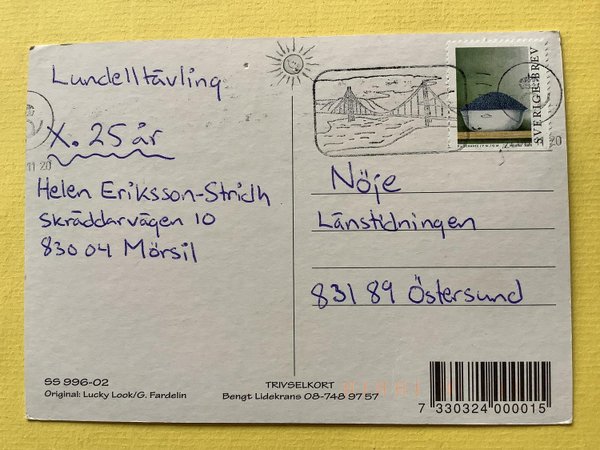 Lundelltävling
X. 25 år
Helen Eriksson-Stridh
Skräddarvägen 10
830 04 Mörsil
SS 996-02
Original: Lucky Look/G. Fardelin
SVERIGE BREV
Nöje
Länstidningen
831 89 Östersund
TRIVSELKORT
Bengt Lidekrans 08-748 97 57
7 330324 000015